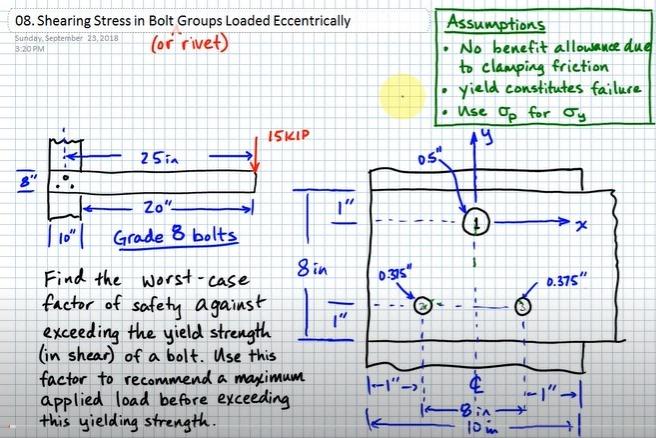 08. Shearing Stress in Bolt Groups Loaded Eccentrically
(or rivet)
Sunday, September 23, 2018
3:20 PM
Assumptions
• No benefit allowance due
to clamping friction
• yield constitutes failure
• Use σp for σy
15KIP
25 in
8"
20"
10"
Grade 8 bolts
Find the worst-case
factor of safety against
exceeding the yield strength
(in shear) of a bolt. Use this
factor to recommend a maximum
applied load before exceeding
this yielding strength.
y
0.5"
1"
1
x
8 in
0.375"
0.375"
2
3
1"
1"
℄
1"
8 in
10 in